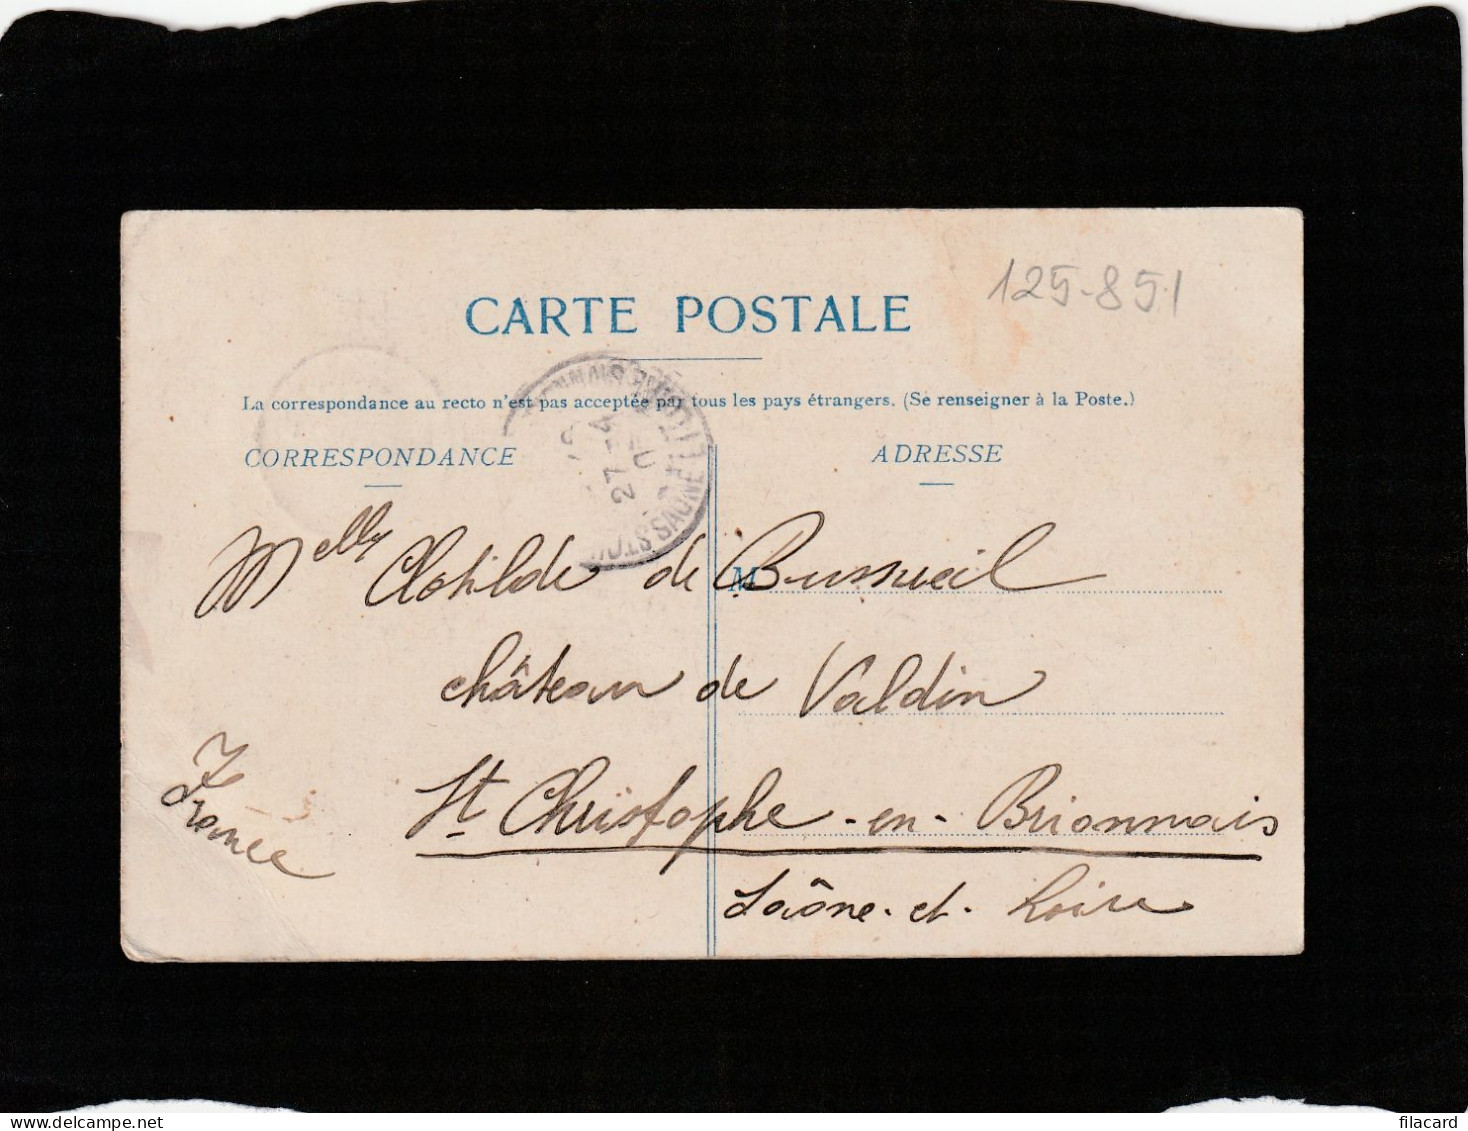 CARTE POSTALE
125-851
La correspondance au recto n'est pas acceptée par tous les pays étrangers. (Se renseigner à la Poste.)
CORRESPONDANCE
ADRESSE
27 -4
SAONE
M
Melle Clotilde de Bussueil
château de Valdin
St Christophe-en-Brionnais
Saône-et-Loire
France
filacard